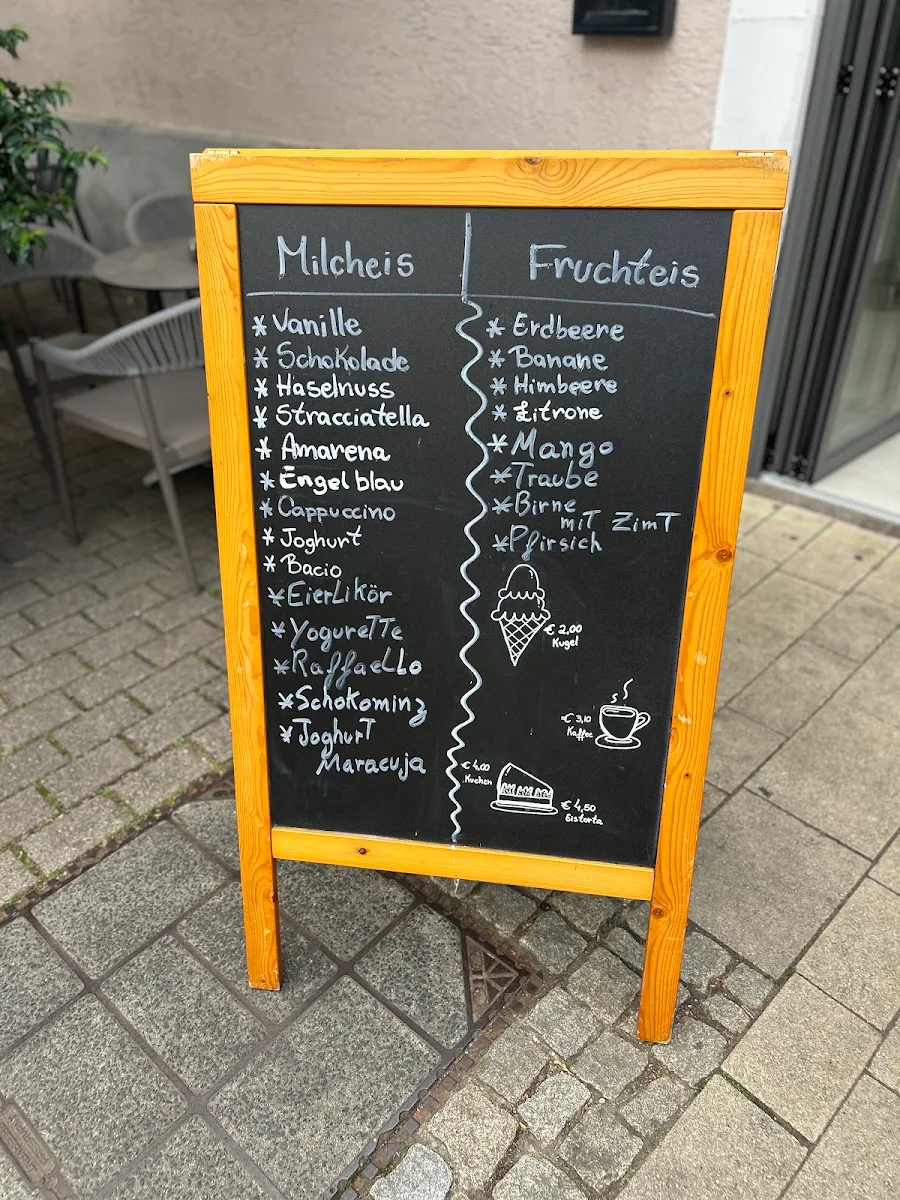 Milcheis
* Vanille
* Schokolade
* Haselnuss
* Stracciatella
* Amarena
* Engel blau
* Cappuccino
* Joghurt
* Bacio
* Eierlikör
* Yogurette
* Raffaello
* Schokominz
* Joghurt
Maracuja
Fruchteis
* Erdbeere
* Banane
* Himbeere
* Zitrone
* Mango
* Traube
* Birne
mit Zimt
* Pfirsich
€ 2,00
Kugel
€ 3,10
Kaffee
€ 4,00
Kuchen
€ 4,50
Eistorta